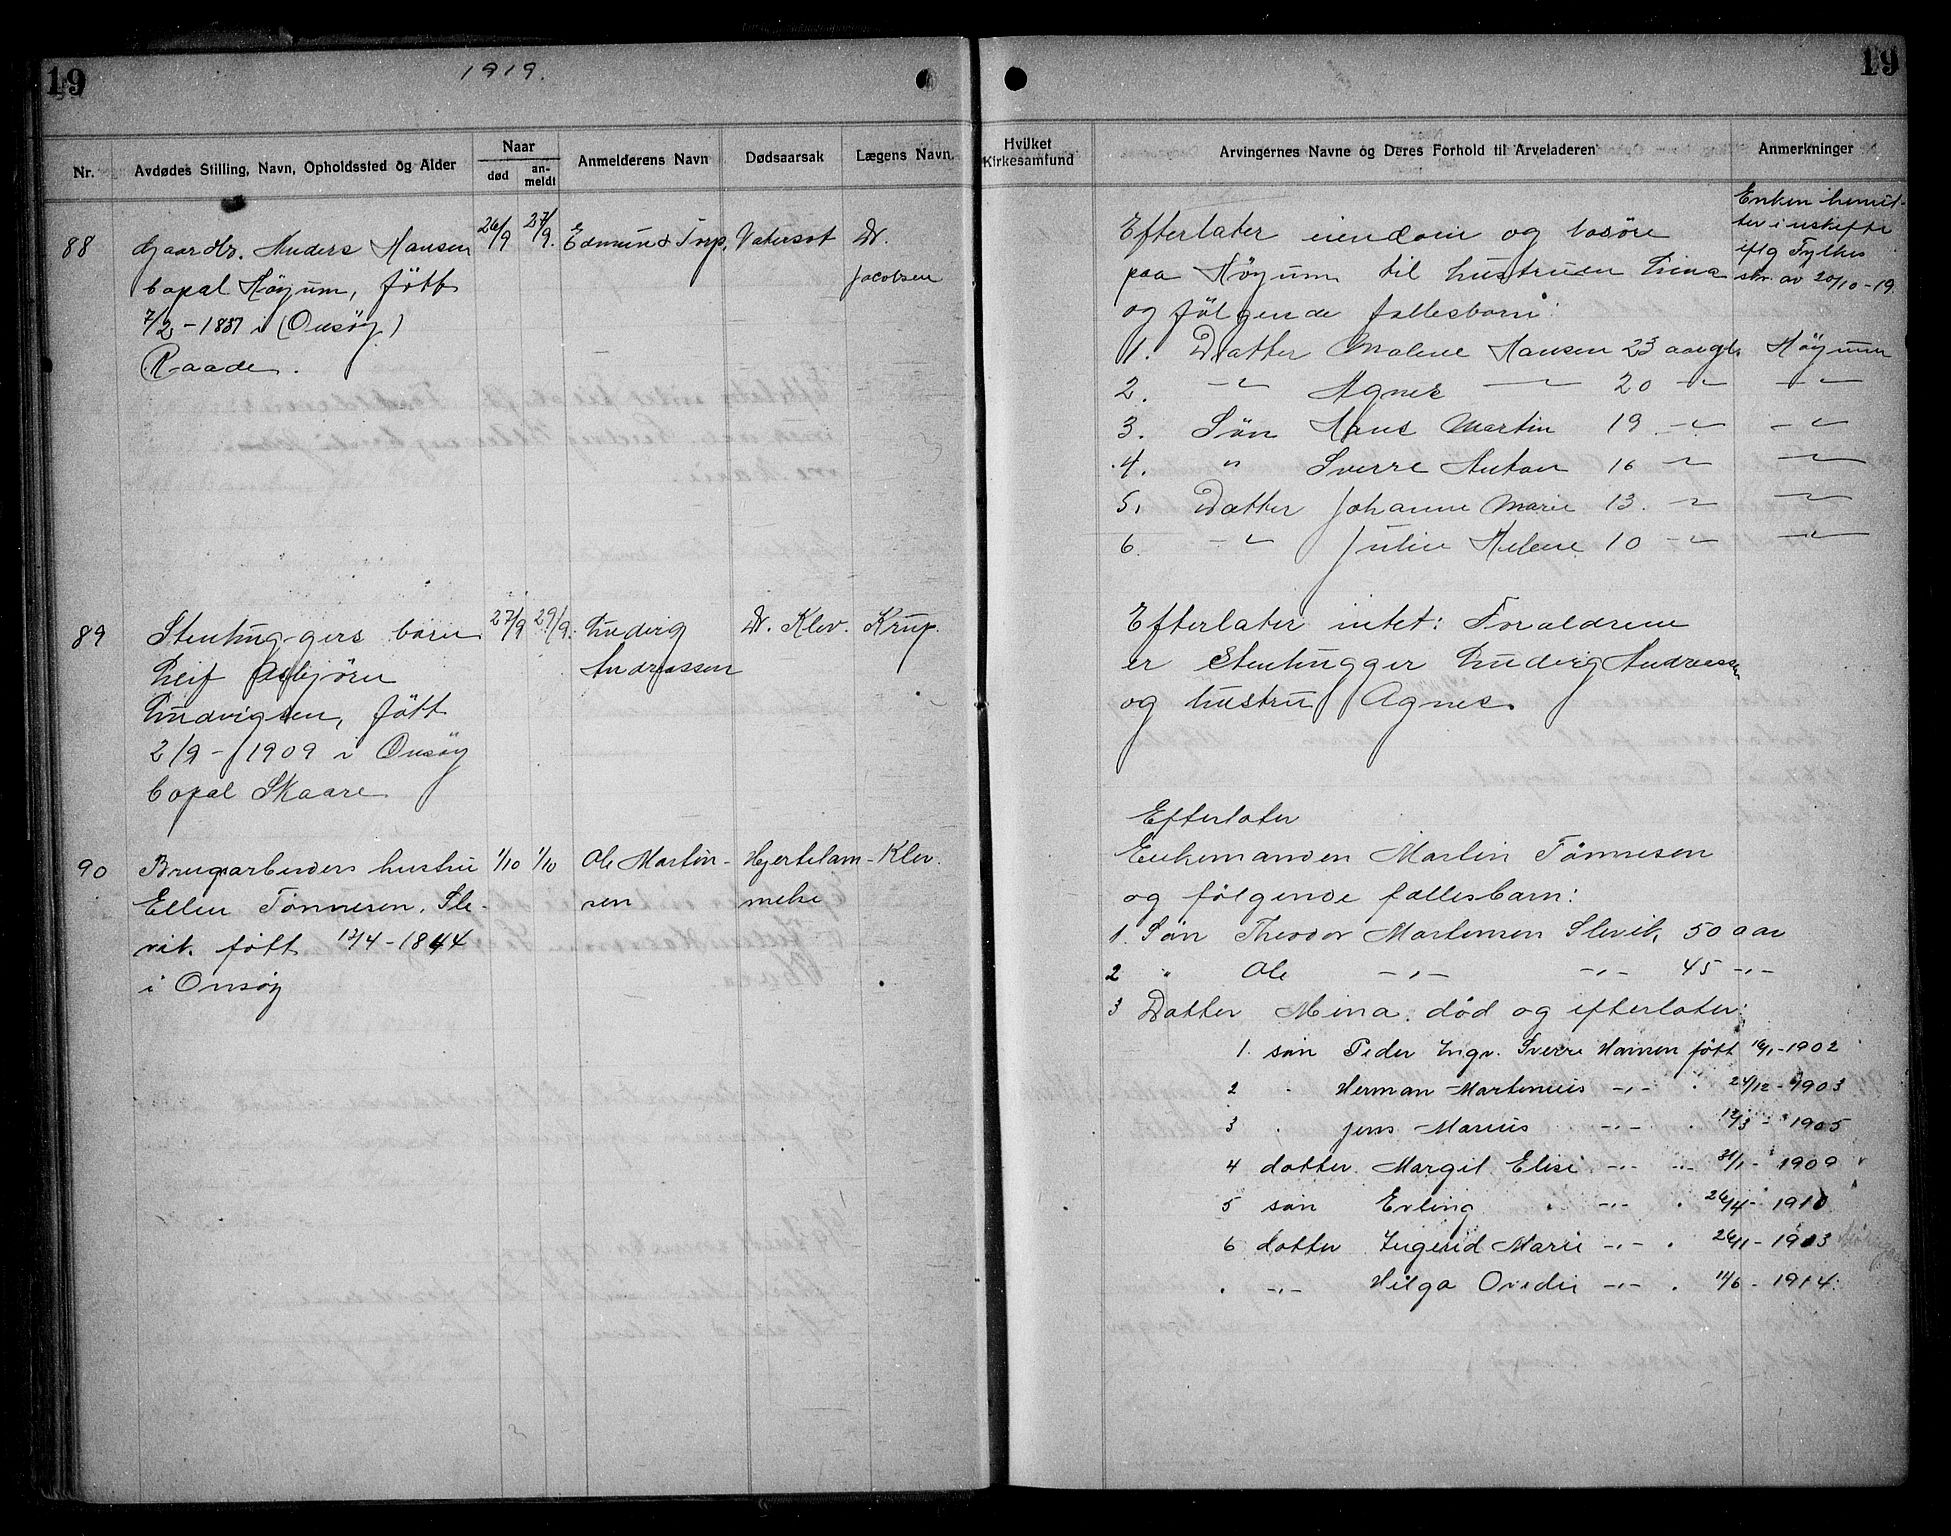 19
1919.
19
Nr.
Avdødes Stilling, Navn, Opholdssted og Alder
Naar
død
an-
meldt
Anmelderens Navn
Dødsaarsak
Lægens Navn.
Hvilket
Kirkesamfund
Arvingernes Navne og Deres Forhold til Arveladeren
Anmerkninger
88
Gaardbr. Anders Hansen
bopæl Höyum, född
7/2 - 1837 i (Onsöy)
Raade.
26/9
27/9.
Edmund Torp,
Vatersot
Dr.
Jacobsen
Efterlater eiendom og lösöre
paa Höyum til hustruen Lina
og fölgende fællesbarn:
1. Datter Malene Hansen 23 aar gl. Höyum
2. -"- Agnes -"- 20 -"- -"-
3. Sön Hans Martin 19 -"- -"-
4. " Sverre Anton 16 -"- -"-
5. Datter Johanne Marie 13. -"- -"-
6. -"- Julie Helene 10 -"- -"-
Enken hensit-
ter i uskifte
iflg Fylkes
skr. av 20/10-19.
89
Stenhuggers barn
Leif Asbjörn
Ludvigsen, född
2/9 - 1909 i Onsöy
bopæl Skaare
27/9
29/9.
Ludvig
Andreassen
Dr. Klev.
Krup.
Efterlater intet: Forældrene
er Stenhugger Ludvig Andreassen
og hustru Agnes.
90
Brugsarbeiders hustru
Ellen Tönnesen, Sle-
vik. född 12/4 - 1844
i Onsöy
1/10
1/10
Ole Martin-
sen
Hjertelam-
melse
Klev.
Efterlater
Enkemanden Martin Tönnesen
og fölgende fællesbarn:
1. Sön Theodor Martinsen Slevik, 50 aar
2 " Ole -"- -"- 45 -"-
3 Datter Mina. död og efterlater:
1. sön Peder Ingv. Sverre Hansen född 16/1-1902
2 " Herman Martinius -"- " 24/12-1903
3 " Jens Marius -"- " 12/3-1905
4 datter Margit Elise -"- " 31/1-1909
5 sön Erling " -"- " 26/4-1910
6 datter Ingerid Marie -"- " 26/1-1913
" -"- Helga Ovedie -"- " 11/6-1914.